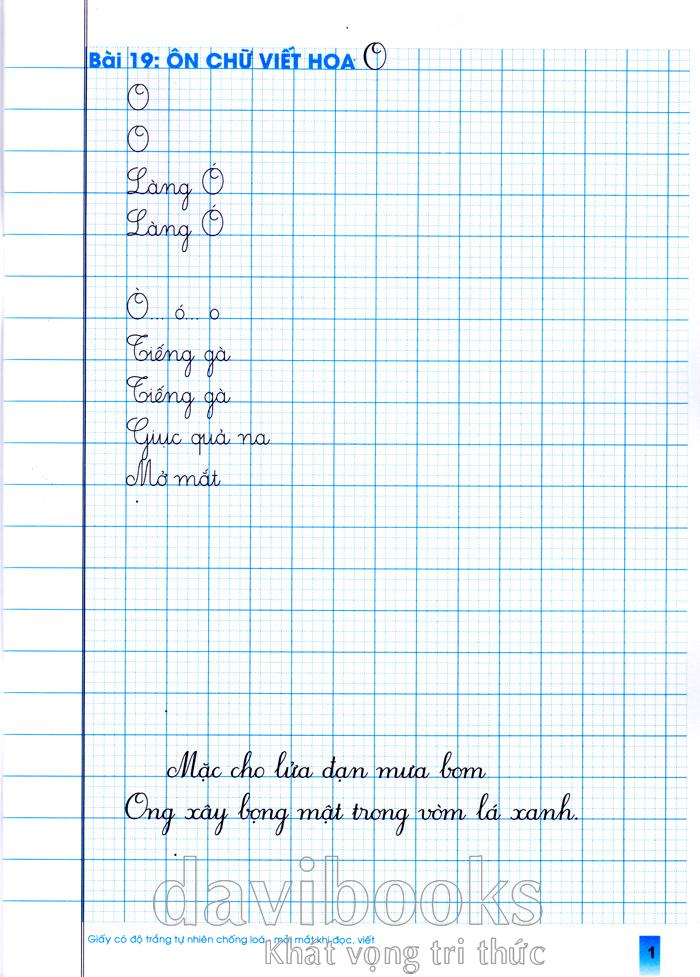 Bài 19: ÔN CHỮ VIẾT HOA O
O
O
Làng Ó
Làng Ó
Ò... ó... o
Tiếng gà
Tiếng gà
Giục quả na
Mở mắt
Mặc cho lửa đạn mưa bom
Ong xây bọng mật trong vòm lá xanh.
davibooks
Giấy có độ trắng tự nhiên chống loá, mỏi mắt khi đọc, viết
Khát vọng tri thức
1